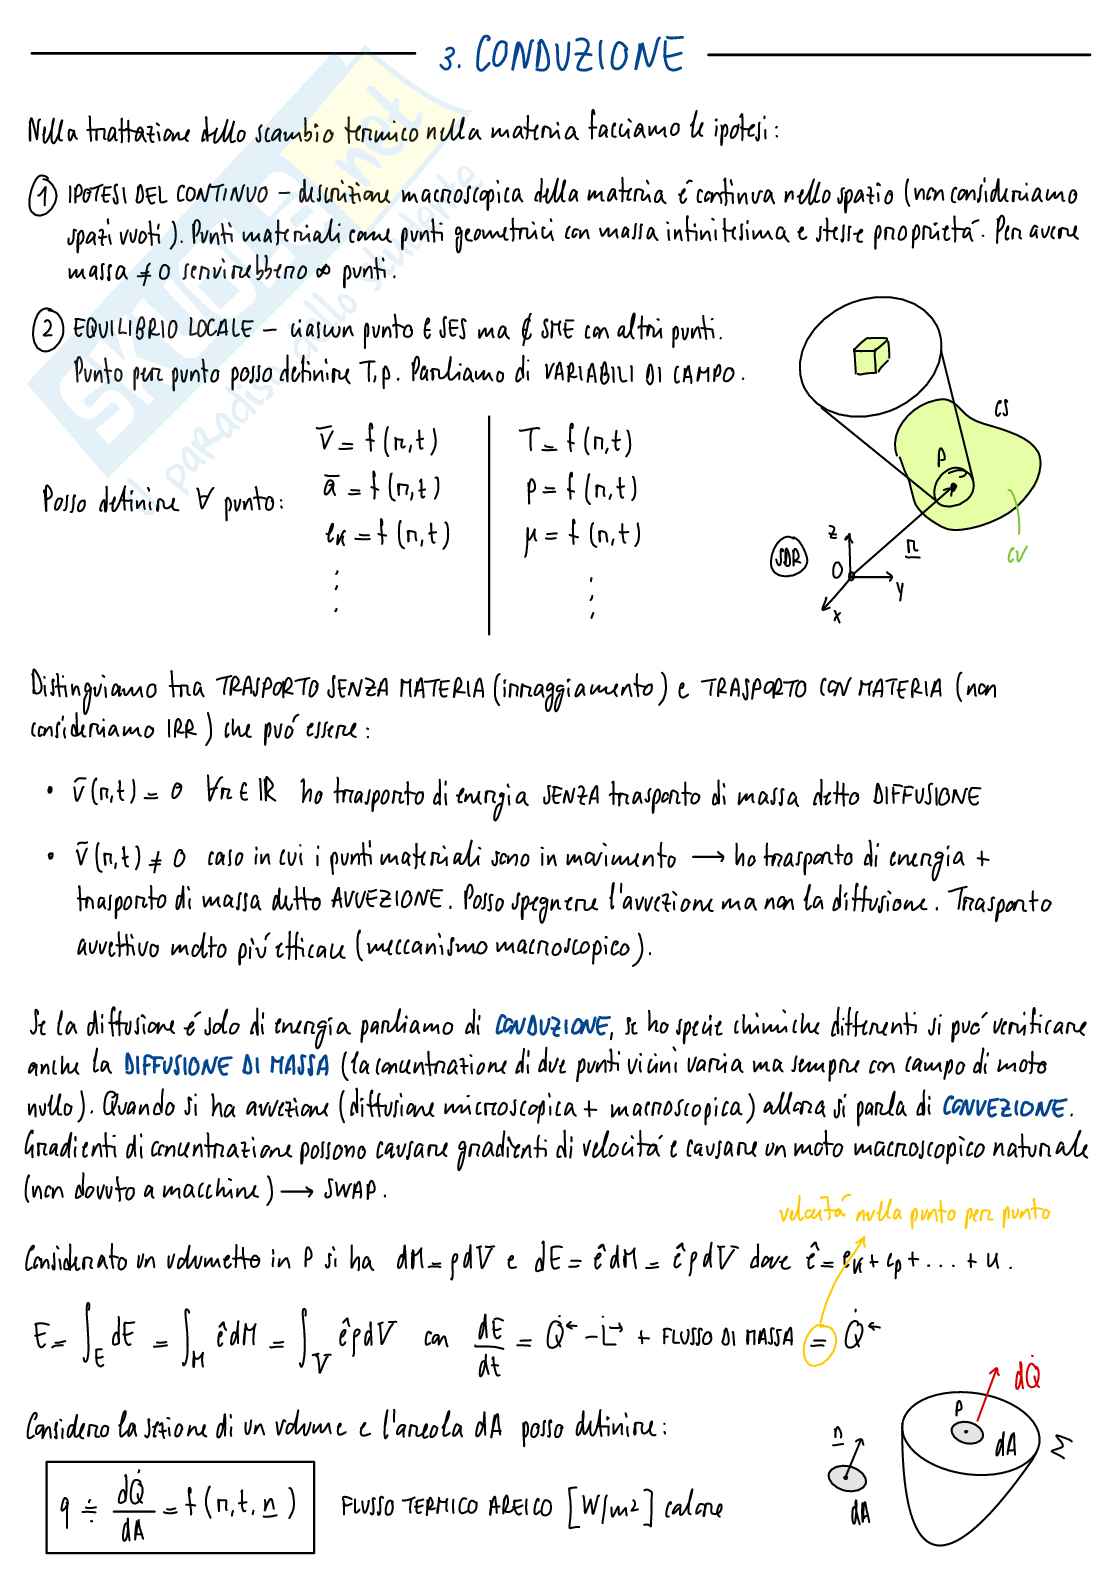 3. CONDUZIONE
Nella trattazione dello scambio termico nella materia facciamo le ipotesi:
① IPOTESI DEL CONTINUO – descrizione macroscopica della materia é continua nello spazio (non consideriamo
spazi vuoti). Punti materiali come punti geometrici con massa infinitesima e stesse proprietá. Per avere
massa ≠ 0 servirebbero ∞ punti.
② EQUILIBRIO LOCALE – ciascun punto ∈ SES ma ∉ SME con altri punti.
Punto per punto posso definire T,p. Parliamo di VARIABILI DI CAMPO.
Posso definire ∀ punto:
v̄ = f(r,t)
ā = f(r,t)
eₖ = f(r,t)
⋮
T = f(r,t)
p = f(r,t)
μ = f(r,t)
⋮
CS
P
r
CV
SDR
z
O
y
x
Distinguiamo tra TRASPORTO SENZA MATERIA (irraggiamento) e TRASPORTO CON MATERIA (non
consideriamo IRR) che puó essere:
• v̄(r,t) = 0 ∀r ∈ ℝ ho trasporto di energia SENZA trasporto di massa detto DIFFUSIONE
• v̄(r,t) ≠ 0 caso in cui i punti materiali sono in movimento → ho trasporto di energia +
trasporto di massa detto AVVEZIONE. Posso spegnere l'avvezione ma non la diffusione. Trasporto
avvettivo molto piú efficace (meccanismo macroscopico).
Se la diffusione é solo di energia parliamo di CONDUZIONE, se ho specie chimiche differenti si puó verificare
anche la DIFFUSIONE DI MASSA (la concentrazione di due punti vicini varia ma sempre con campo di moto
nullo). Quando si ha avvezione (diffusione microscopica + macroscopica) allora si parla di CONVEZIONE.
Gradienti di concentrazione possono causare gradienti di velocitá e causare un moto macroscopico naturale
(non dovuto a macchine) → SWAP.
velocitá nulla punto per punto
Considerato un volumetto in P si ha dM = ρdV e dE = êdM = êρdV dove ê = eₖ + eₚ + ... + u.
E = ∫_E dE = ∫_M êdM = ∫_V êρdV con dE/dt = Q̇← - L̇→ + FLUSSO DI MASSA = Q̇←
Considero la sezione di un volume e l'areola dA posso definire:
q ≑ dQ̇/dA = f(r,t,n) FLUSSO TERMICO AREICO [W/m²] calore
n
dA
P
dQ̇
dA
Σ
SKUOLA.net
il paradiso dello studente